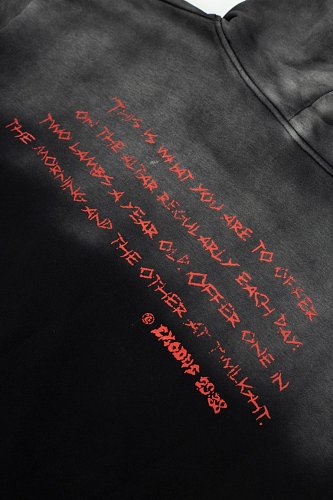 THIS IS WHAT YOU ARE TO OFFER
ON THE ALTAR REGULARLY EACH DAY:
TWO LAMBS A YEAR OLD. OFFER ONE IN
THE MORNING AND THE OTHER AT TWILIGHT.
® EXODUS 29:38